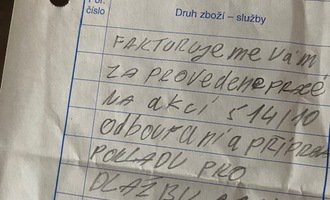 Poř.
číslo
Druh zboží – služby
FAKTURUJEME VÁM
ZA PROVEDENÉ PRÁCE
NA AKCI 514/10
ODBOURÁNÍ A PŘÍPRAVA
POKLADU PRO
DLAŽBU